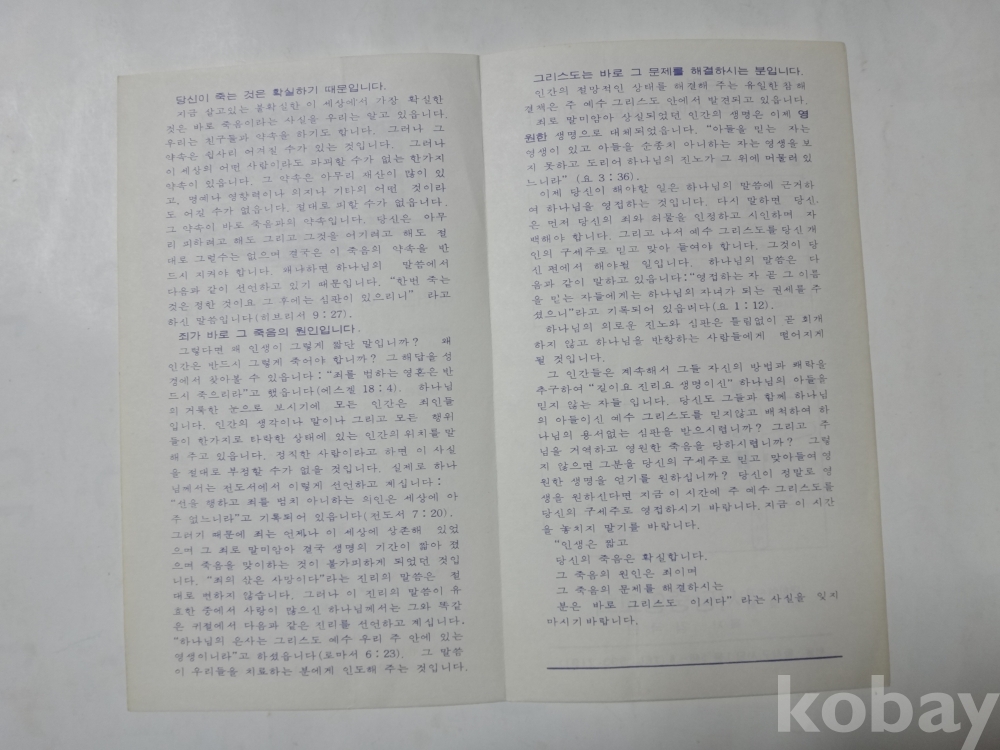 당신이 죽는 것은 확실하기 때문입니다.
지금 살고있는 불확실한 이 세상에서 가장 확실한
것은 바로 죽음이라는 사실을 우리는 알고 있읍니다.
우리는 친구들과 약속을 하기도 합니다. 그러나 그
약속은 쉽사리 어겨질 수가 있는 것입니다. 그러나
이 세상의 어떤 사람이라도 파괴할 수가 없는 한가지
약속이 있읍니다. 그 약속은 아무리 재산이 많이 있
고, 명예나 영향력이나 의지나 기타의 어떤 것이라
도 어길 수가 없읍니다. 절대로 피할 수가 없읍니다.
그 약속이 바로 죽음과의 약속입니다. 당신은 아무
리 피하려고 해도 그리고 그것을 어기려고 해도 절
대로 그럴수는 없으며 결국은 이 죽음의 약속을 반
드시 지켜야 합니다. 왜냐하면 하나님의 말씀에서
다음과 같이 선언하고 있기 때문입니다. “한번 죽는
것은 정한 것이요 그 후에는 심판이 있으리니” 라고
하신 말씀입니다(히브리서 9:27).
죄가 바로 그 죽음의 원인입니다.
그렇다면 왜 인생이 그렇게 짧단 말입니까? 왜
인간은 반드시 그렇게 죽어야 합니까? 그 해답을 성
경에서 찾아볼 수 있읍니다:“죄를 범하는 영혼은 반
드시 죽으리라”고 했읍니다(에스겔 18:4). 하나님
의 거룩한 눈으로 보시기에 모든 인간은 죄인들
입니다. 인간의 생각이나 말이나 그리고 모든 행위
들이 한가지로 타락한 상태에 있는 인간의 위치를 말
해 주고 있읍니다. 정직한 사람이라고 하면 이 사실
을 절대로 부정할 수가 없을 것입니다. 실제로 하나
님께서는 전도서에서 이렇게 선언하고 계십니다:
“선을 행하고 죄를 범치 아니하는 의인은 세상에 아
주 없느니라”고 기록되어 있읍니다(전도서 7:20).
그러기 때문에 죄는 언제나 이 세상에 상존해 있었
으며 그 죄로 말미암아 결국 생명의 기간이 짧아 졌
으며 죽음을 맞이하는 것이 불가피하게 되었던 것입
니다. “죄의 삯은 사망이다”라는 진리의 말씀은 절
대로 변하지 않습니다. 그러나 이 진리의 말씀이 유
효한 중에서 사랑이 많으신 하나님께서는 그와 똑같
은 귀절에서 다음과 같은 진리를 선언하고 계십니다.
“하나님의 은사는 그리스도 예수 우리 주 안에 있는
영생이니라”고 하셨읍니다(로마서 6:23). 그 말씀
이 우리들을 치료하는 분에게 인도해 주는 것입니다.
그리스도는 바로 그 문제를 해결하시는 분입니다.
인간의 절망적인 상태를 해결해 주는 유일한 참 해
결책은 주 예수 그리스도 안에서 발견되고 있읍니다.
죄로 말미암아 상실되었던 인간의 생명은 이제 영
원한 생명으로 대체되었읍니다. “아들을 믿는 자는
영생이 있고 아들을 순종치 아니하는 자는 영생을 보
지 못하고 도리어 하나님의 진노가 그 위에 머물러 있
느니라” (요 3:36).
이제 당신이 해야할 일은 하나님의 말씀에 근거하
여 하나님을 영접하는 것입니다. 다시 말하면 당신
은 먼저 당신의 죄와 허물을 인정하고 시인하며 자
백해야 합니다. 그리고 나서 예수 그리스도를 당신 개
인의 구세주로 믿고 맞아 들여야 합니다. 그것이 당
신 편에서 해야될 일입니다. 하나님의 말씀은 다
음과 같이 말하고 있읍니다:“영접하는 자 곧 그 이름
을 믿는 자들에게는 하나님의 자녀가 되는 권세를 주
셨으니”라고 기록되어 있읍니다(요 1:12).
하나님의 의로운 진노와 심판은 틀림없이 곧 회개
하지 않고 하나님을 반항하는 사람들에게 떨어지게
될 것입니다.
그 인간들은 계속해서 그들 자신의 방법과 쾌락을
추구하여 “길이요 진리요 생명이신” 하나님의 아들을
믿지 않는 자들 입니다. 당신도 그들과 함께 하나님
의 아들이신 예수 그리스도를 믿지않고 배척하여 하
나님의 용서없는 심판을 받으시렵니까? 그리고 주
님을 거역하고 영원한 죽음을 당하시렵니까? 그렇
지 않으면 그분을 당신의 구세주로 믿고 맞아들여 영
원한 생명을 얻기를 원하십니까? 당신이 정말로 영
생을 원하신다면 지금 이 시간에 주 예수 그리스도를
당신의 구세주로 영접하시기 바랍니다. 지금 이 시간
을 놓치지 말기를 바랍니다.
“인생은 짧고
당신의 죽음은 확실합니다.
그 죽음의 원인은 죄이며
그 죽음의 문제를 해결하시는
분은 바로 그리스도 이시다” 라는 사실을 잊지
마시기 바랍니다.
kobay